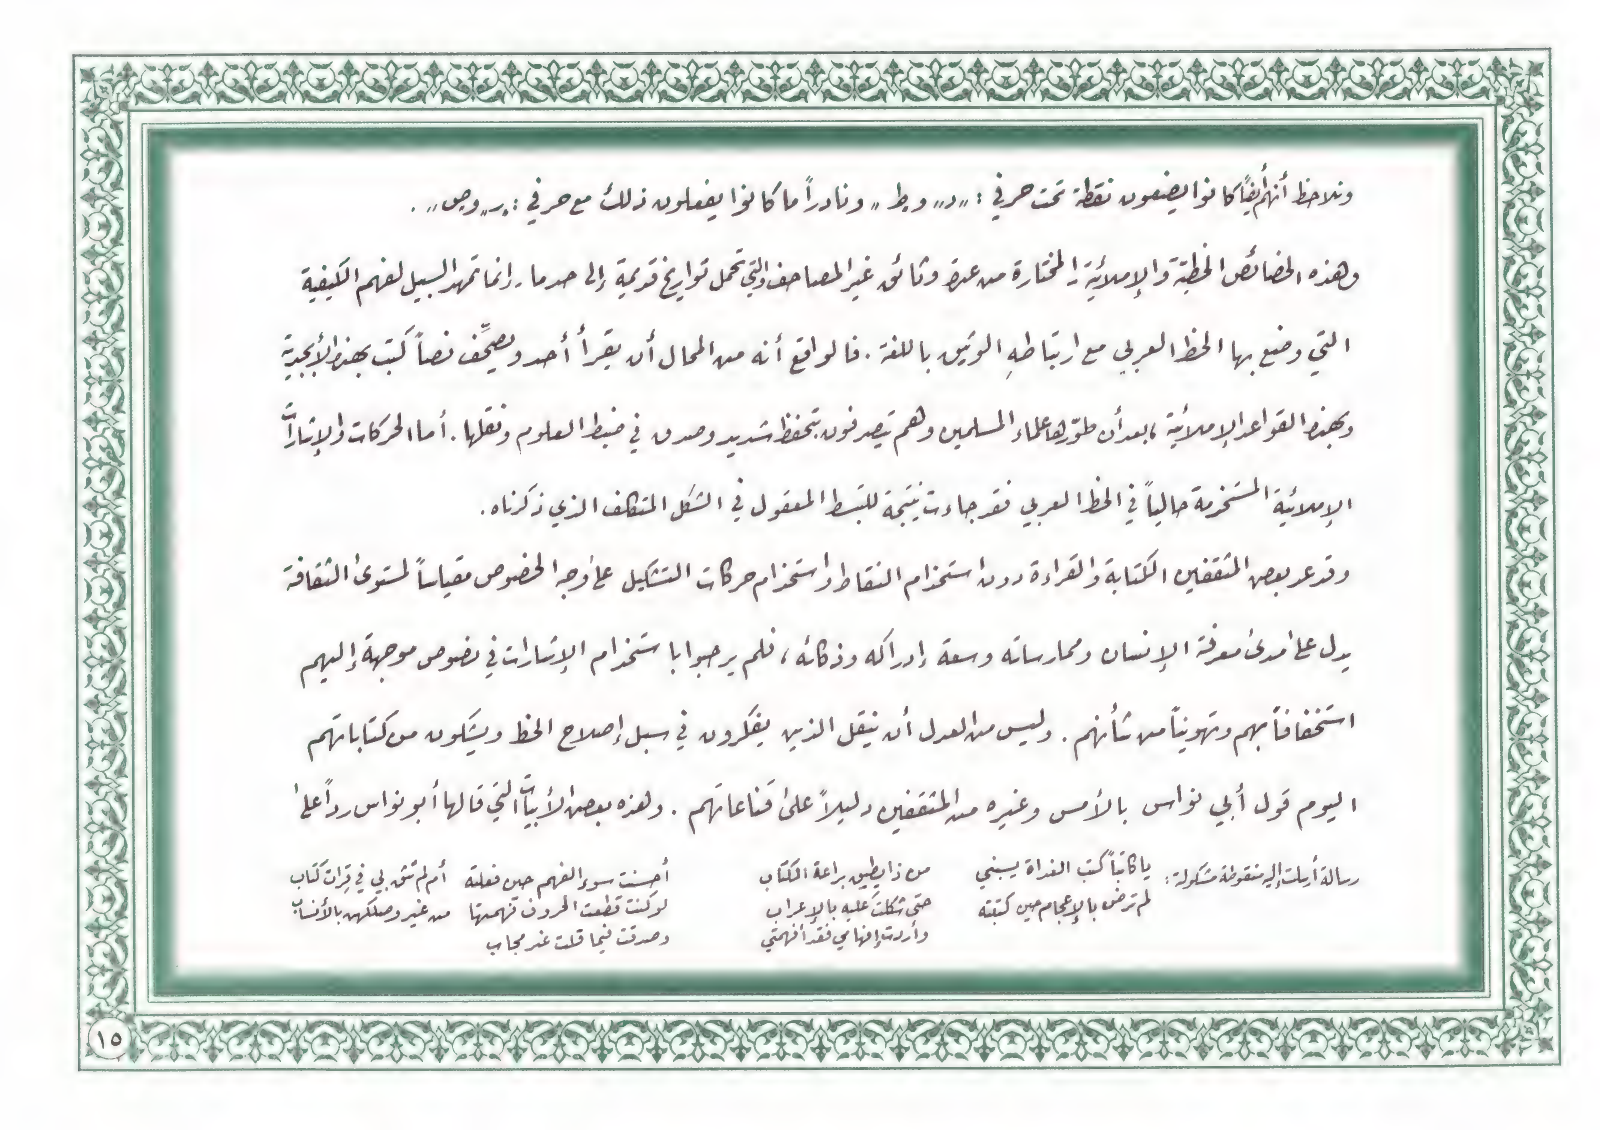 ونلاحظ أنهم أيضاً كانوا يضعون نقطة تحت حرفي : „د„ و„ط„ ونادراً ما كانوا يفعلون ذلك مع حرفي : „ر„ و„ص„ .
وهذه الخصائص الخطيّة والإملائية المختارة من عدة وثائق غير المصاحف والتي تحمل تواريخ قديمة إلى حد ما ، إنما تمهد السبيل لفهم الكيفية
التي وضع بها الخط العربي مع ارتباطهِ الوثيق باللغة . فالواقع أنه من المحال أن يقرأ أحد ويصحِّف نصاً كتب بهذه الأبجدية
وبهذه القواعد الإملائية ، بعد أن طوّرها علماء المسلمين وهم يتصرفون بتحفظ شديد وصدق في ضبط العلوم ونقلها . أما الحركات والإشارات
الإملائية المستخدمة حالياً في الخط العربي فقد جاءت نتيجة للتبسط المعقول في الشكل المتكلف الذي ذكرناه .
وقد عد بعض المثقفين الكتابة والقراءة دون استخدام النقاط واستخدام حركات التشكيل على وجه الخصوص مقياساً لمستوى الثقافة
يدل على مدى معرفة الإنسان وممارساته وسعة إدراكه وذكائه ، فلم يرحبوا باستخدام الإشارات في نصوص موجهة إليهم
استخفافاً بهم وتهويناً من شأنهم . وليس من العدل أن ينقل الذين يفكرون في سبل إصلاح الخط ويشكون من كتاباتهم
اليوم قول أبي نواس بالأمس وغيره من المثقفين دليلاً على قناعاتهم . وهذه بعض الأبيات التي قالها أبو نواس رداً على
رسالة أرسلت إليه منقوطة مشكولة : يا كاتباً كتب الغداة يسبني من ذا يطيق براعة الكتاب أحسنت سوء الفهم حين فعلته أم لم تثق بي في قرات كتاب
لم ترض بالإعجام حين كتبته حتى شكلت عليه بالإعراب لو كنت قطعت الحروف فهمتها من غير وصلكهن بالأنساب
وأردت إفهامي فقد أفهمتني وصدقت فيما قلت غير محاب
١٥